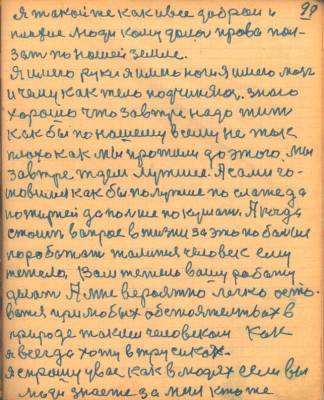 99
Я такой же как и все добрые и
плохие люди кому дано право пол-
зат по нашей земле.
Я имею руки я имею ноги я имею мозг
и чему как тело подчиняюс. знаю
хорошо что завтре надо жит
как бы по нашему всему не так
плохо как мы прожили до этого. мы
завтре ждем лутшие. А сами го-
товимся как бы полутше по слаже да
по жирней да полше покушат. А когда
стоит вапрос в жизни за это по больше
поработат тагится человек ему
тежело, Вам тежело вашу работу
делат А мне вероятно легко оста-
ватся при любых обстоятелствах в
природе таким человеком Как
я всегда хожу в трусиках.
я спрашу у вас как в людях если вы
люди знаете за мы кто же